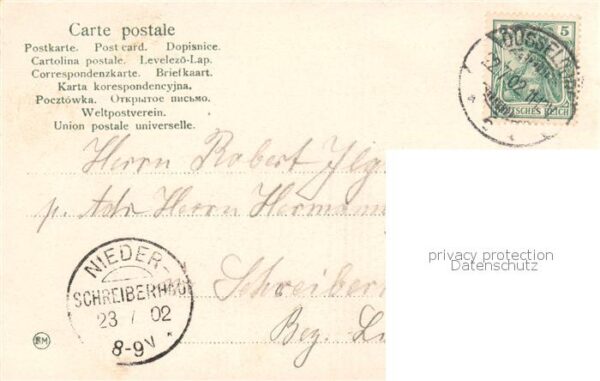 Carte postale
Postkarte. Post card. Dopisnice.
Cartolina postale. Levelező-Lap.
Correspondenzkarte. Briefkaart.
Karta korespondencyjna.
Pocztówka. Открытое письмо.
Weltpostverein.
Union postale universelle.
5
DEUTSCHES REICH
DÜSSELDORF
02
Herrn Robert Ilg
p. Adr. Herrn Hermann
Schreiber
Bez. L
NIEDER-
SCHREIBERHAU
23 / 02
8-9V
BM
privacy protection
Datenschutz